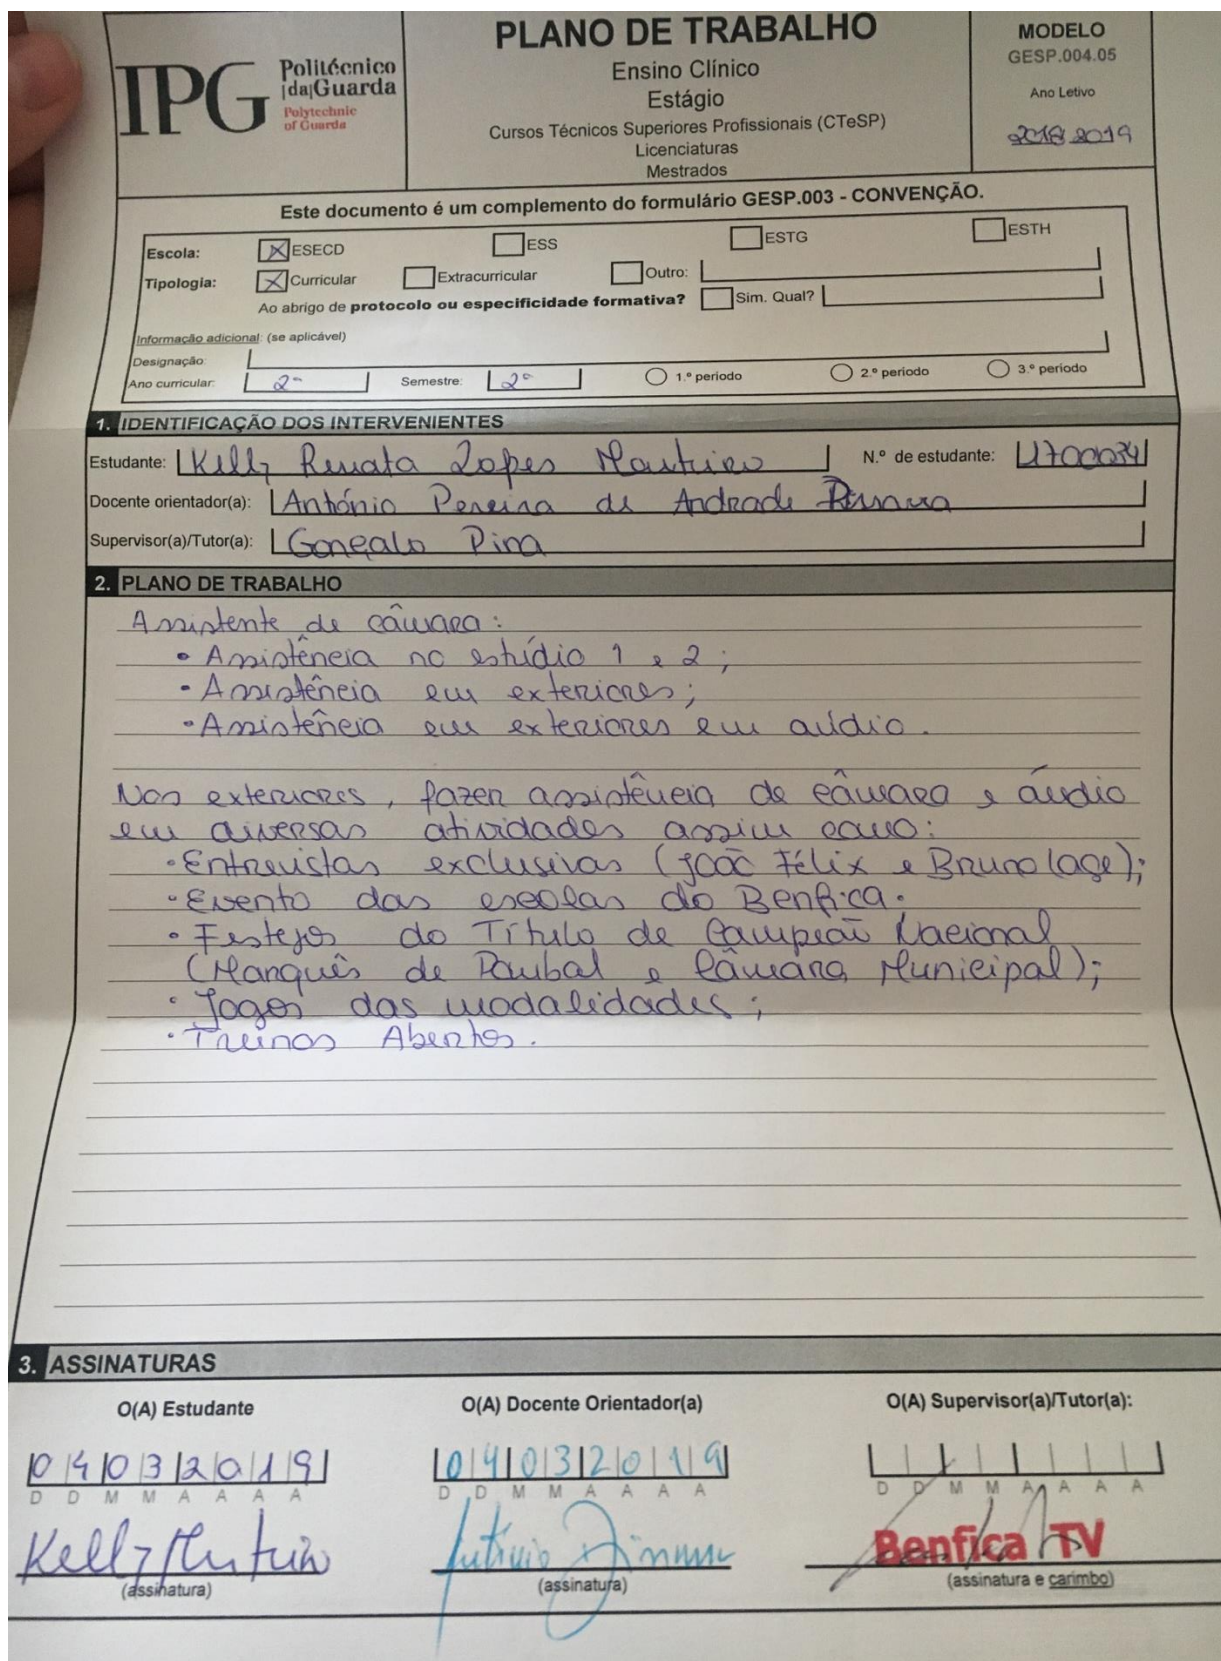 IPG
Politécnico
|da|Guarda
Polytechnic
of Guarda
PLANO DE TRABALHO
Ensino Clínico
Estágio
Cursos Técnicos Superiores Profissionais (CTeSP)
Licenciaturas
Mestrados
MODELO
GESP.004.05
Ano Letivo
2018 2019
Este documento é um complemento do formulário GESP.003 - CONVENÇÃO.
Escola: ESECD ESS ESTG ESTH
Tipologia: Curricular Extracurricular Outro:
Ao abrigo de protocolo ou especificidade formativa? Sim. Qual?
Informação adicional: (se aplicável)
Designação:
Ano curricular: 2º Semestre: 2º 1.º período 2.º período 3.º período
1. IDENTIFICAÇÃO DOS INTERVENIENTES
Estudante: Kelly Renata Lopes Monteiro N.º de estudante: 1700034
Docente orientador(a): António Pereira de Andrade
Supervisor(a)/Tutor(a): Gonçalo Pina
2. PLANO DE TRABALHO
Assistente de câmara:
• Assistência no estúdio 1 e 2;
• Assistência em exteriores;
• Assistência em exteriores em aúdio.
Nos exteriores, fazer assistência de câmara e áudio
em diversas atividades assim como:
• Entrevistas exclusivas (João Félix e Bruno Lage);
• Evento das escolas do Benfica.
• Festejos do Título de Campeão Nacional
(Marquês de Pombal e Câmara Municipal);
• Jogos das modalidades;
• Treinos Abertos.
3. ASSINATURAS
O(A) Estudante O(A) Docente Orientador(a) O(A) Supervisor(a)/Tutor(a):
04032019 04032019
D D M M A A A A D D M M A A A A D D M M A A A A
Benfica TV
(assinatura) (assinatura) (assinatura e carimbo)